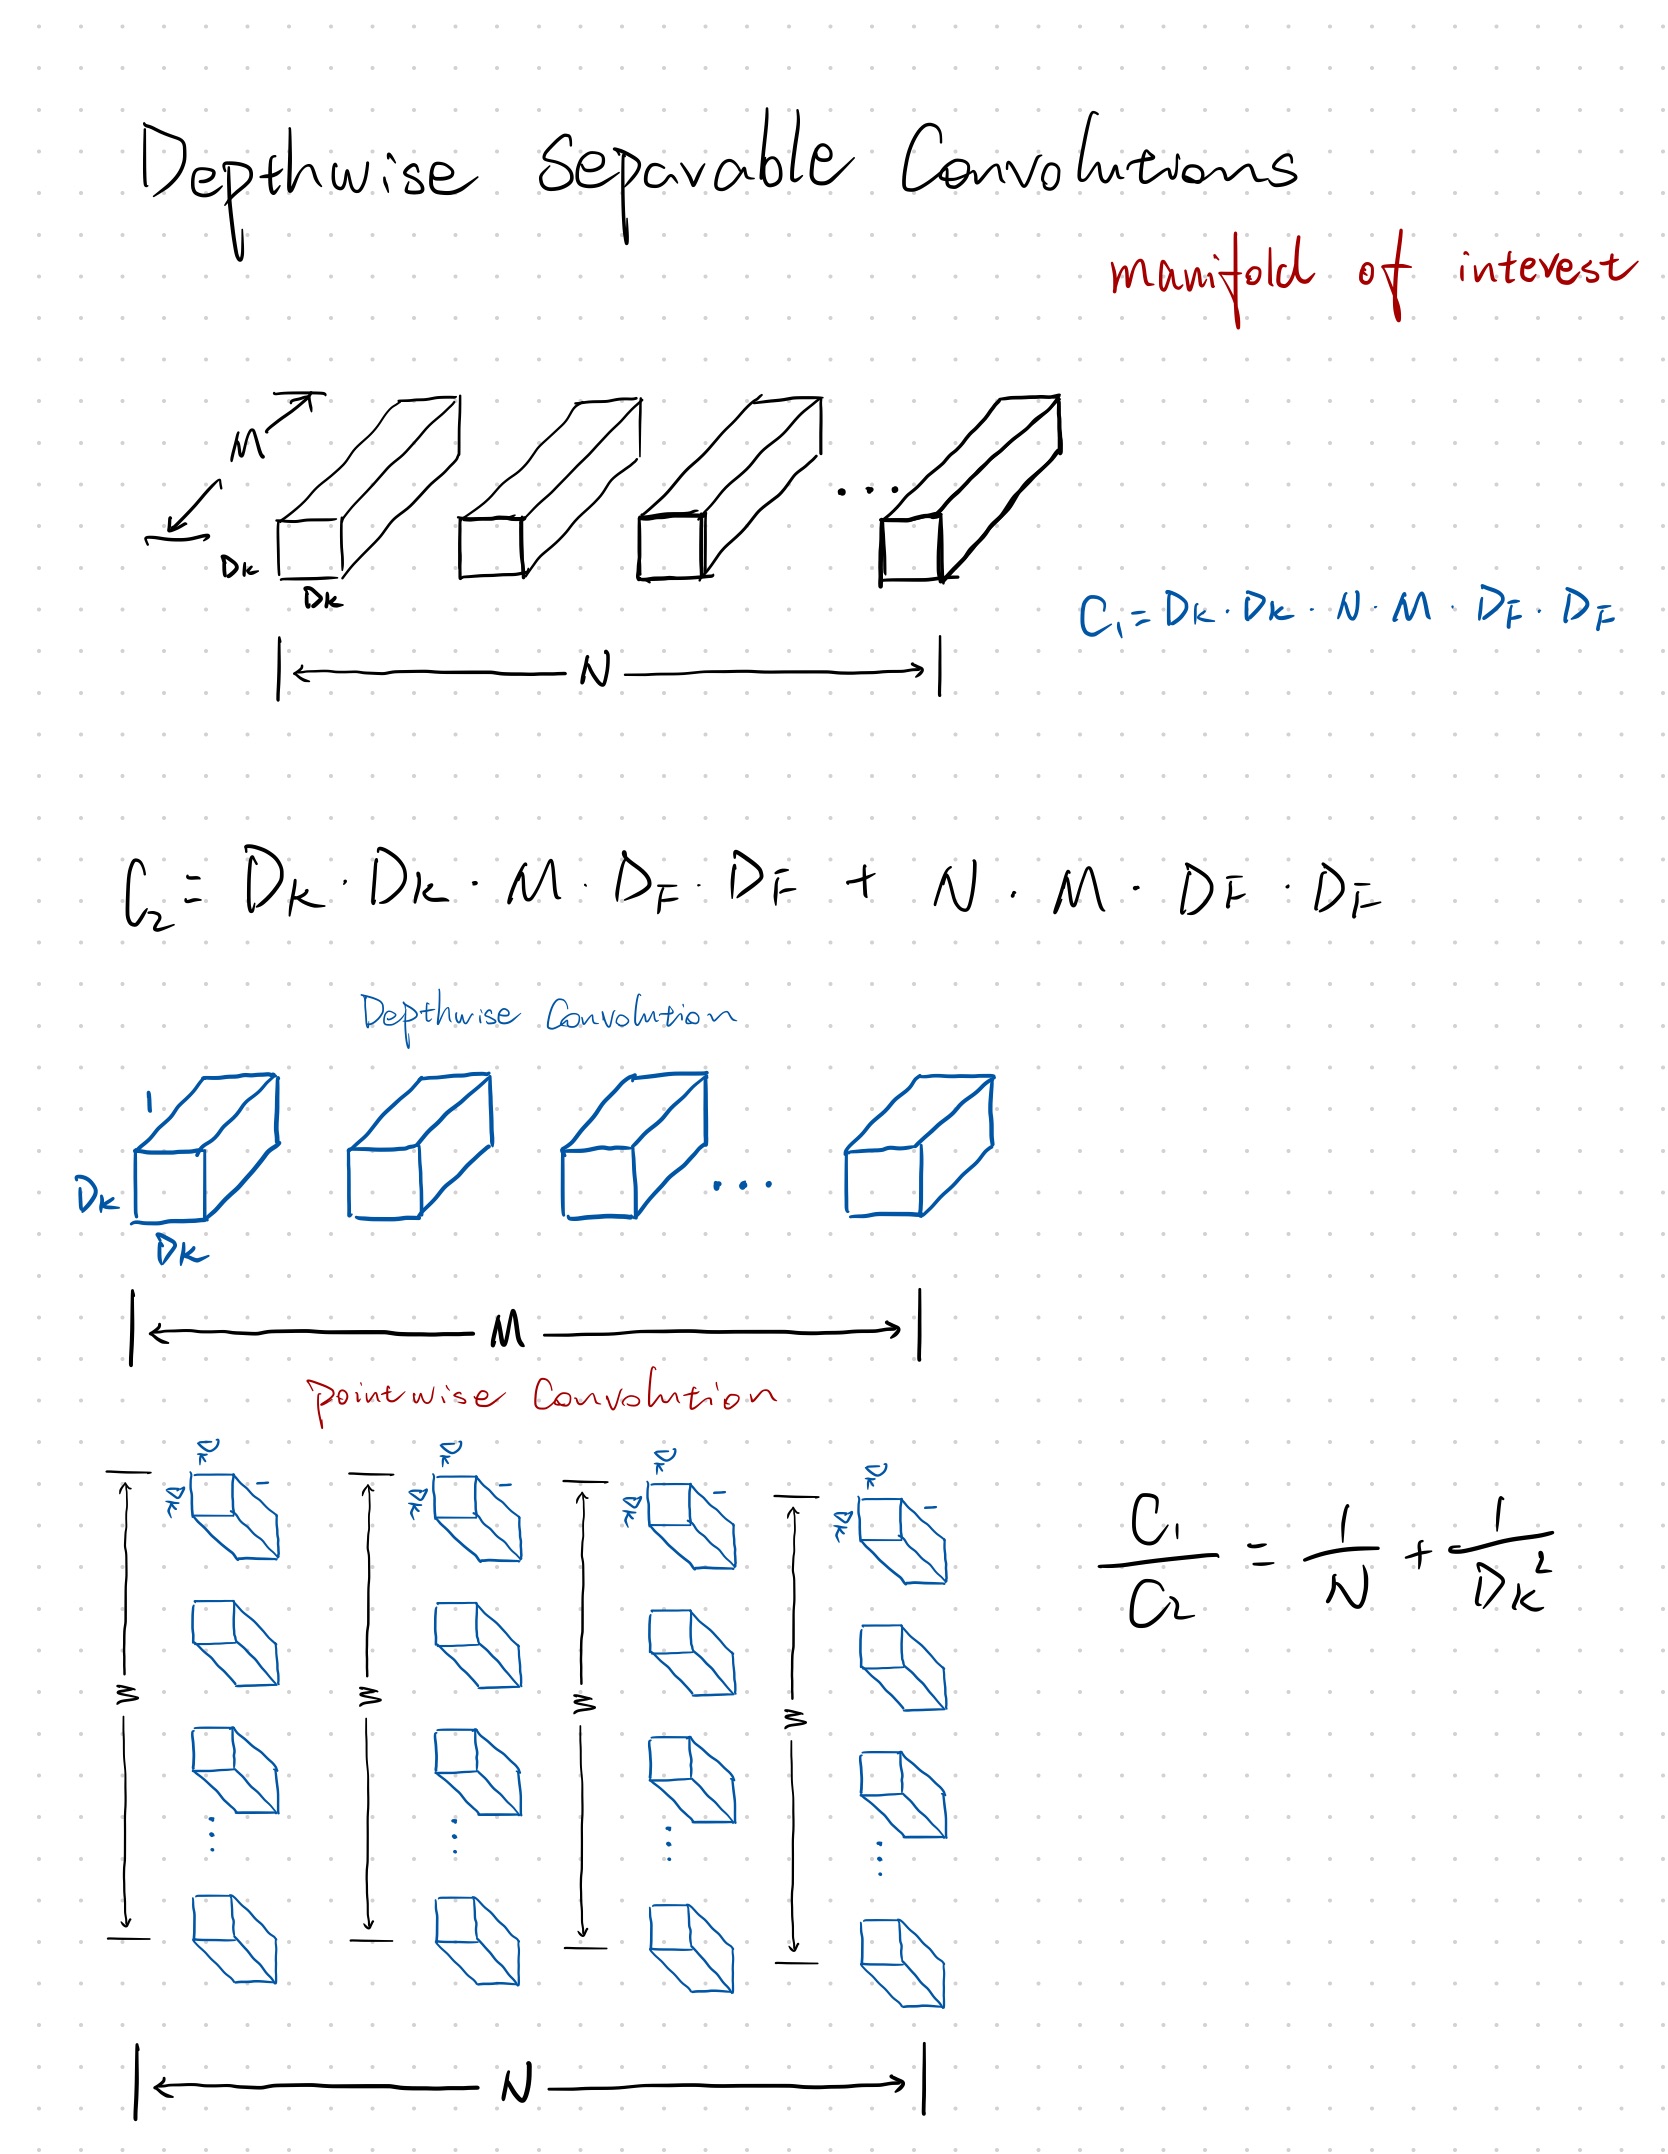 Depthwise Separable Convolutions
manifold of interest
M
DK
DK
C₁ = DK · DK · N · M · DF · DF
N
C₂ = DK · DK · M · DF · DF + N · M · DF · DF
Depthwise Convolution
1
DK
DK
M
pointwise Convolution
DK DK DK DK
DK 1 DK 1 DK 1 DK 1
C₁/C₂ = 1/N + 1/DK²
M M M M
N